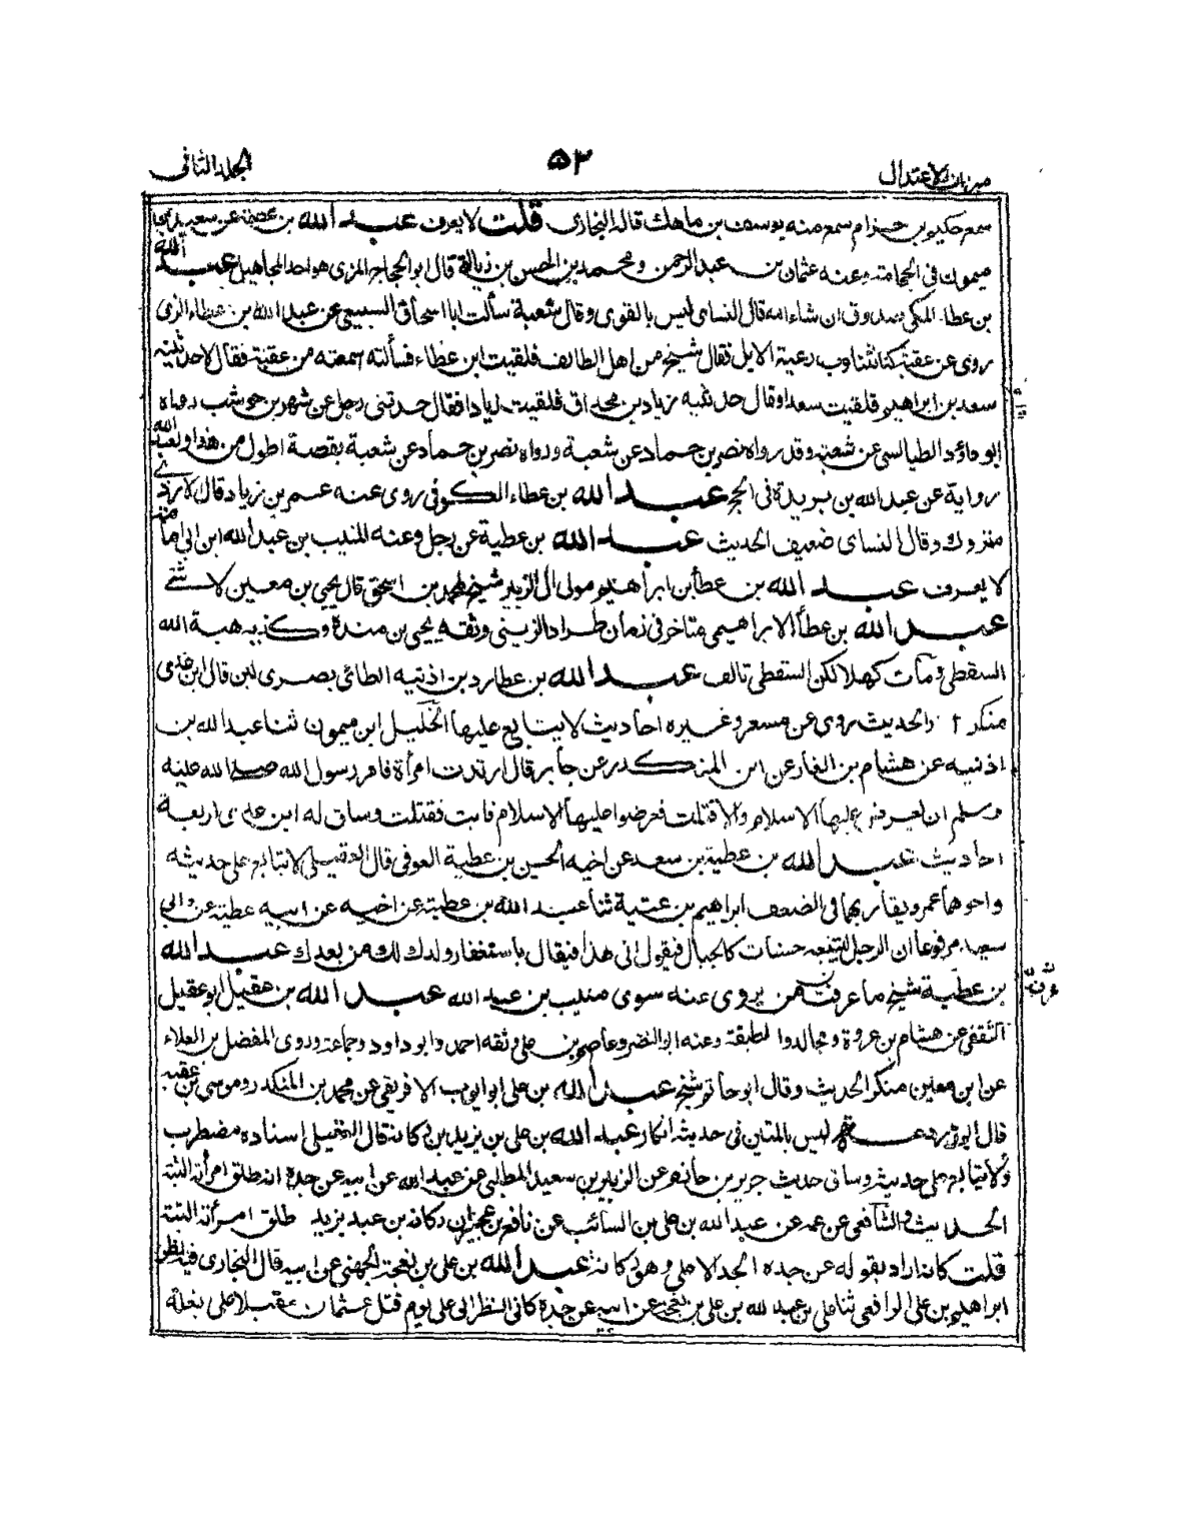 ميزان الاعتدال
٥٢
الجلد الثانى
سمع حكيم بن حزام سمع منه يوسف بن ماهك قاله البخارى قلت لا يعرف عبد الله بن عصمة عن سعيد بن
ميمون فى الحجامة وعنه عثمان بن عبد الرحمن ومحمد بن الحسن بن زبالة قال ابو الحجاج المزى هو احد المجاهيل عبد الله
بن عطاء المكى صدوق ان شاء الله قال النساى ليس بالقوى وقال شعبة سألت ابا اسحاق السبيعى عن عبد الله بن عطاء الذى
روى عن عقبة كنا نتناوب رعية الابل فقال شيخ من اهل الطائف فلقيت ابن عطاء فسألته اسمعته من عقبة فقال لا حدثنيه
سعد بن ابراهيم فلقيت سعدا وقال حدثنيه زياد بن مخراق فلقيت زيادا فقال حدثنى رجل عن شهر بن حوشب رواه
ابو داؤد الطيالسى عن شعبة وقد رواه نصر بن حماد عن شعبة ورواه نصر بن حماد عن شعبة بقصة اطول من هذا ولعبد الله
رواية عن عبد الله بن بريدة فى الحج عبد الله بن عطاء الكوفى روى عنه عمر بن زياد قال الازدى
متروك وقال النساى ضعيف الحديث عبد الله بن عطية عن رجل وعنه المنيب بن عبد الله ابن ابى امامة
لا يعرف عبد الله بن عطأ بن ابراهيم مولى ال الزبير شيخ لمحمد بن اسحق قال يحيى بن معين لا شئ
عبد الله بن عطأ الابراهيمى متاخر فى زمان طراد الزينبى وثقه يحيى بن مندة وكذبه هبة الله
السقطى ومات كهلا لكن السقطى تالف عبد الله بن عطارد بن اذنيه الطائى بصرى لين قال ابن عدى
منكر الحديث روى عن مسعر وغيره احاديث لا يتابع عليها الخليل ابن ميمون ثنا عبد الله بن
اذنيه عن هشام بن الغار عن ابن المنكدر عن جابر قال ارتدت امرأة فامر رسول الله صلى الله عليه
وسلم ان يعرض عليها الاسلام والا قتلت فعرضوا عليها الاسلام فابت فقتلت وساق له ابن عدى اربعة
احاديث عبد الله بن عطية بن سعد عن اخيه الحسن بن عطية العوفى قال العقيلى لا يتابع على حديثه
واخوهما عمرو يقاربهما فى الضعف ابراهيم بن عتبة ثنا عبد الله بن عطية عن اخيه عن ابيه عطية عن ابى
سعيد مرفوعا ان الرجل لتتبعه حسنات كالجبال فيقول انى هذا فيقال باستغفار ولدك لك من بعدك عبد الله
بن عطية شيخ ما عرفت من يروى عنه سوى منيب بن عبد الله عبد الله بن عقيل ابو عقيل
الثقفى عن هشام بن عروة ومجالد والطبقة وعنه ابو النضر وعاصم بن على وثقه احمد وابو داود وجماعة وروى المفضل بن العلاء
عن ابن معين منكر الحديث وقال ابو حاتم شيخ عبد الله بن على ابو ايوب الافريقى عن محمد بن المنكدر وموسى بن عقبة
قال ابو زرعة ليس بالمتين فى حديثه انكار عبد الله بن على بن يزيد بن ركانة قال العقيلى اسناده مضطرب
ولا يتابع على حديثه وساق حديث جرير بن حازم عن الزبير بن سعيد المطلبى عن عبد الله عن ابيه عن جده انه طلق امرأته البتة
الحديث والشافعى عن عمه عن عبد الله بن على بن السائب عن نافع بن عجير ان ركانة بن عبد يزيد طلق امرأته البتة
قلت كانه اراد بقوله عن جده الجد الاعلى وهو ركانة عبد الله بن على بن بعجة الجهنى عن ابيه قال البخارى فيه نظر
ابراهيم بن على الرافعى ثنا على بن عبد الله بن على بن بعجة عن ابيه عن جده كانى انظر الى على يوم قتل عثمان مقبلا على بغلة